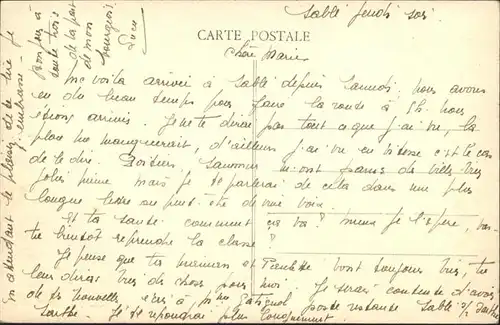 Sablé Jeudi soir
CARTE POSTALE
Chère Marie
Me voilà arrivée à Sablé depuis Samedi, nous avons
eu du beau temps pour faire la route à 5h. nous
étions arrivés. Je ne te dirai pas tout ce que j'ai vu, la
place me manquerait, d'ailleurs j'ai vu en vitesse c'est le cas
de le dire. Poitiers Saumur m'ont parus de villes très
jolies même mais je te parlerai de cela dans une plus
longue lettre ou peut-être de vive voix.
Et ta santé comment ça va? mieux je l'espère, vas-
tu bientôt reprendre la classe?
Je pense que ta maman et Paulette vont toujours bien, tu
leur diras bien des choses pour moi. Je serais contente d'avoir
de tes nouvelles écris à Mme poste restante Sablé s/ Sarthe
Sarthe. Je te répondrai plus longuement
m attendant le plaisir de te lire je
t'embrasse
Bonjour à
toute
de la part
de mon